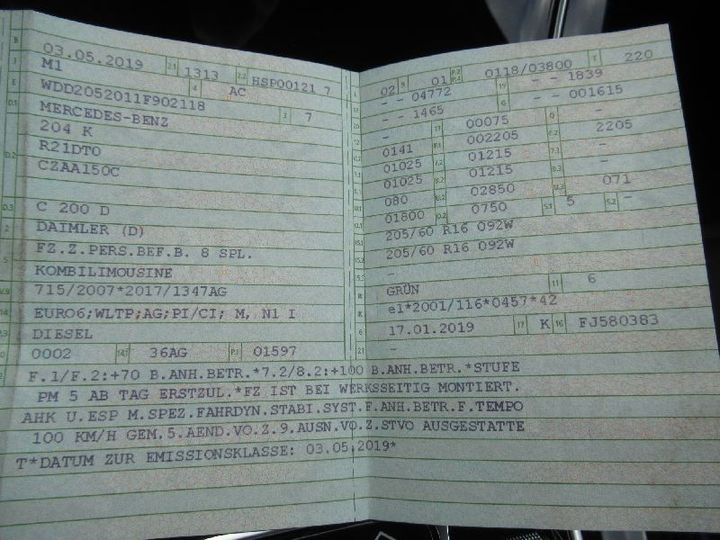 B 03.05.2019 2.1 1313 2.2 HSP00121 7
J M1 4 AC
E WDD2052011F902118 3 7
D.1 MERCEDES-BENZ
204 K
D.2 R21DT0
CZAA150C
D.3 C 200 D
2 DAIMLER (D)
5 FZ.Z.PERS.BEF.B. 8 SPL.
KOMBILIMOUSINE
V.9 715/2007*2017/1347AG
14 EURO6;WLTP;AG;PI/CI; M, N1 I
DIESEL
0002 14.1 36AG P.1 01597
L 02 9 01 P.2 P.4 0118/03800 T 220
18 - - 04772 19 - - 1839
20 - - 1465 G - - 001615
12 - 13 00075 Q -
0141 002205 F.2 2205
01025 01215 -
01025 8.2 01215 -
080 U.2 02850 U.3 071
01800 O.2 0750 S.1 5 S.2 -
205/60 R16 092W
205/60 R16 092W
-
R GRÜN 11 6
K e1*2001/116*0457*42
6 17.01.2019 17 K 16 FJ580383
21 -
F.1/F.2:+70 B.ANH.BETR.*7.2/8.2:+100 B.ANH.BETR.*STUFE
PM 5 AB TAG ERSTZUL.*FZ IST BEI WERKSSEITIG MONTIERT.
AHK U.ESP M.SPEZ.FAHRDYN.STABI.SYST.F.ANH.BETR.F.TEMPO
100 KM/H GEM.5.AEND.VO.Z.9.AUSN.VO.Z.STVO AUSGESTATTE
T*DATUM ZUR EMISSIONSKLASSE: 03.05.2019*